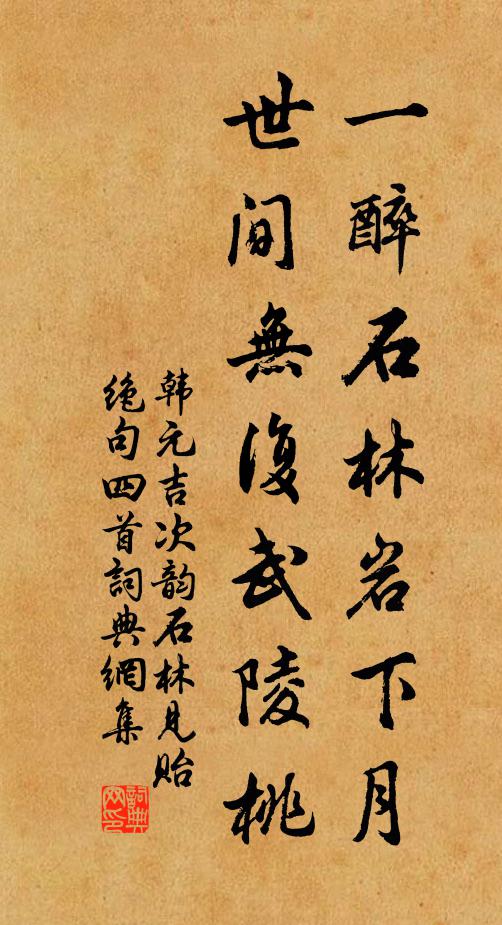 一醉石林岩下月
世间無復武陵桃
韩元吉次韵石林见贻
绝句四首詞典網集
詞典网印